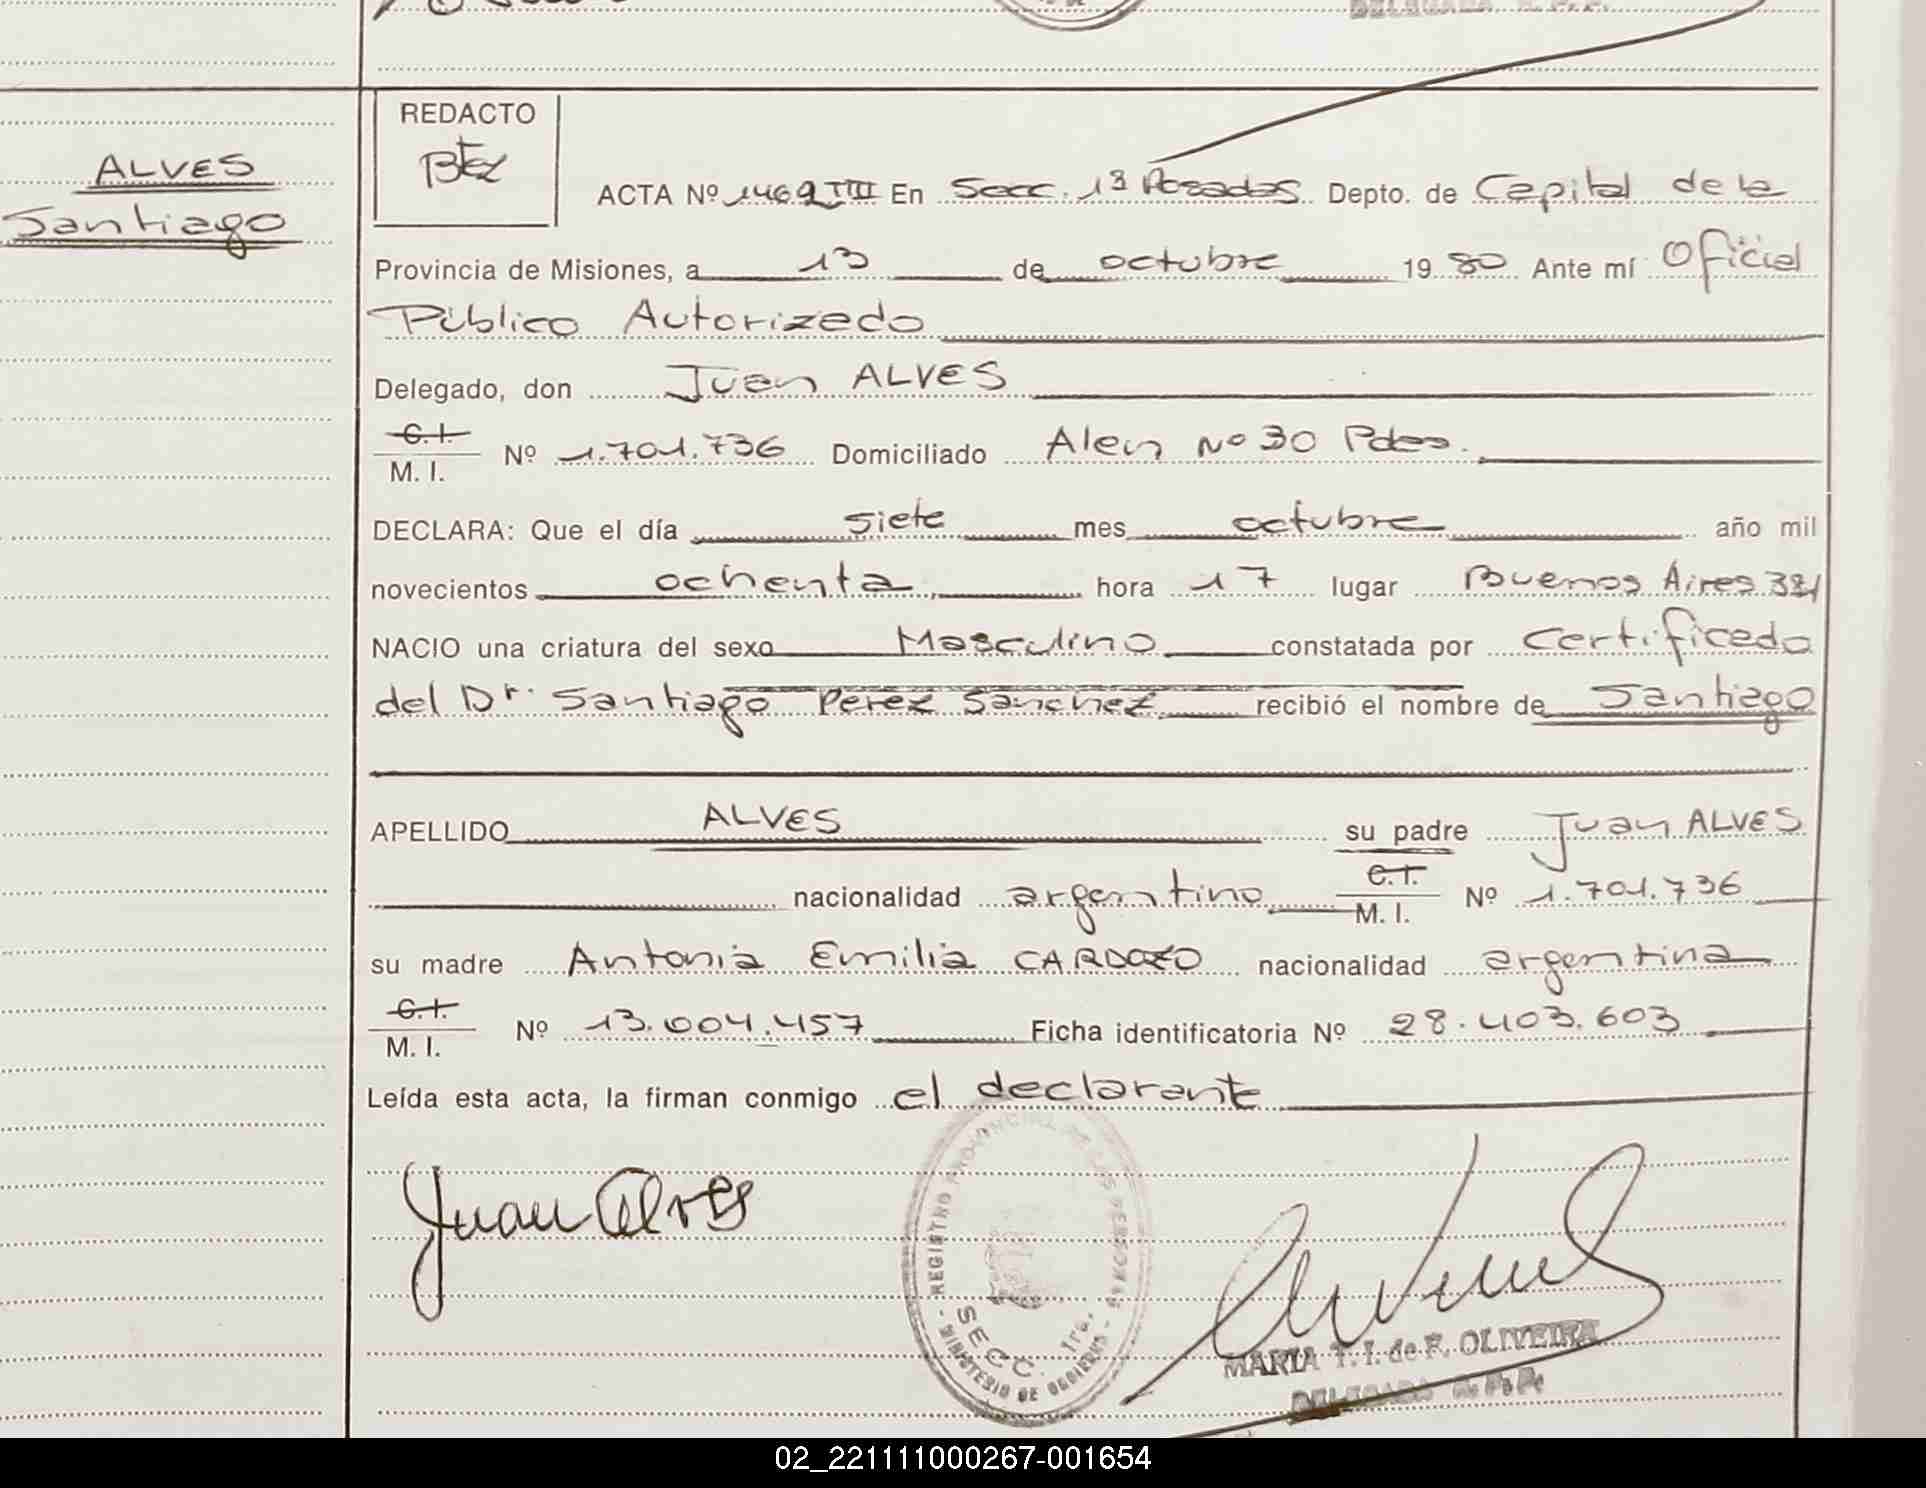 DELEGADA R. P. P.
REDACTO
ALVES
Santiago
ACTA Nº 1469 TIII En Secc. 1ª Posadas Depto. de Capital de la
Provincia de Misiones, a 13 de octubre 19 80 Ante mí Oficial
Público Autorizado
Delegado, don Juan ALVES
C. I.
M. I. Nº 1.701.736 Domiciliado Alem Nº 30 Pdas.
DECLARA: Que el día siete mes octubre año mil
novecientos ochenta hora 17 lugar Buenos Aires
NACIO una criatura del sexo Masculino constatada por Certificado
del Dr. Santiago Perez Sanchez recibió el nombre de Santiago
APELLIDO ALVES su padre Juan ALVES
nacionalidad argentino C. I. M. I. Nº 1.701.736
su madre Antonia Emilia CARDOZO nacionalidad argentina
C. I.
M. I. Nº 13.004.457 Ficha identificatoria Nº 28.403.603
Leída esta acta, la firman conmigo el declarante
Juan Alves
REGISTRO PROVINCIAL DE LAS PERSONAS
SECC. 1ra.
MINISTERIO DE GOBIERNO
MARIA T. I. de F. OLIVEIRA
DELEGADA R. P. P.
02_221111000267-001654